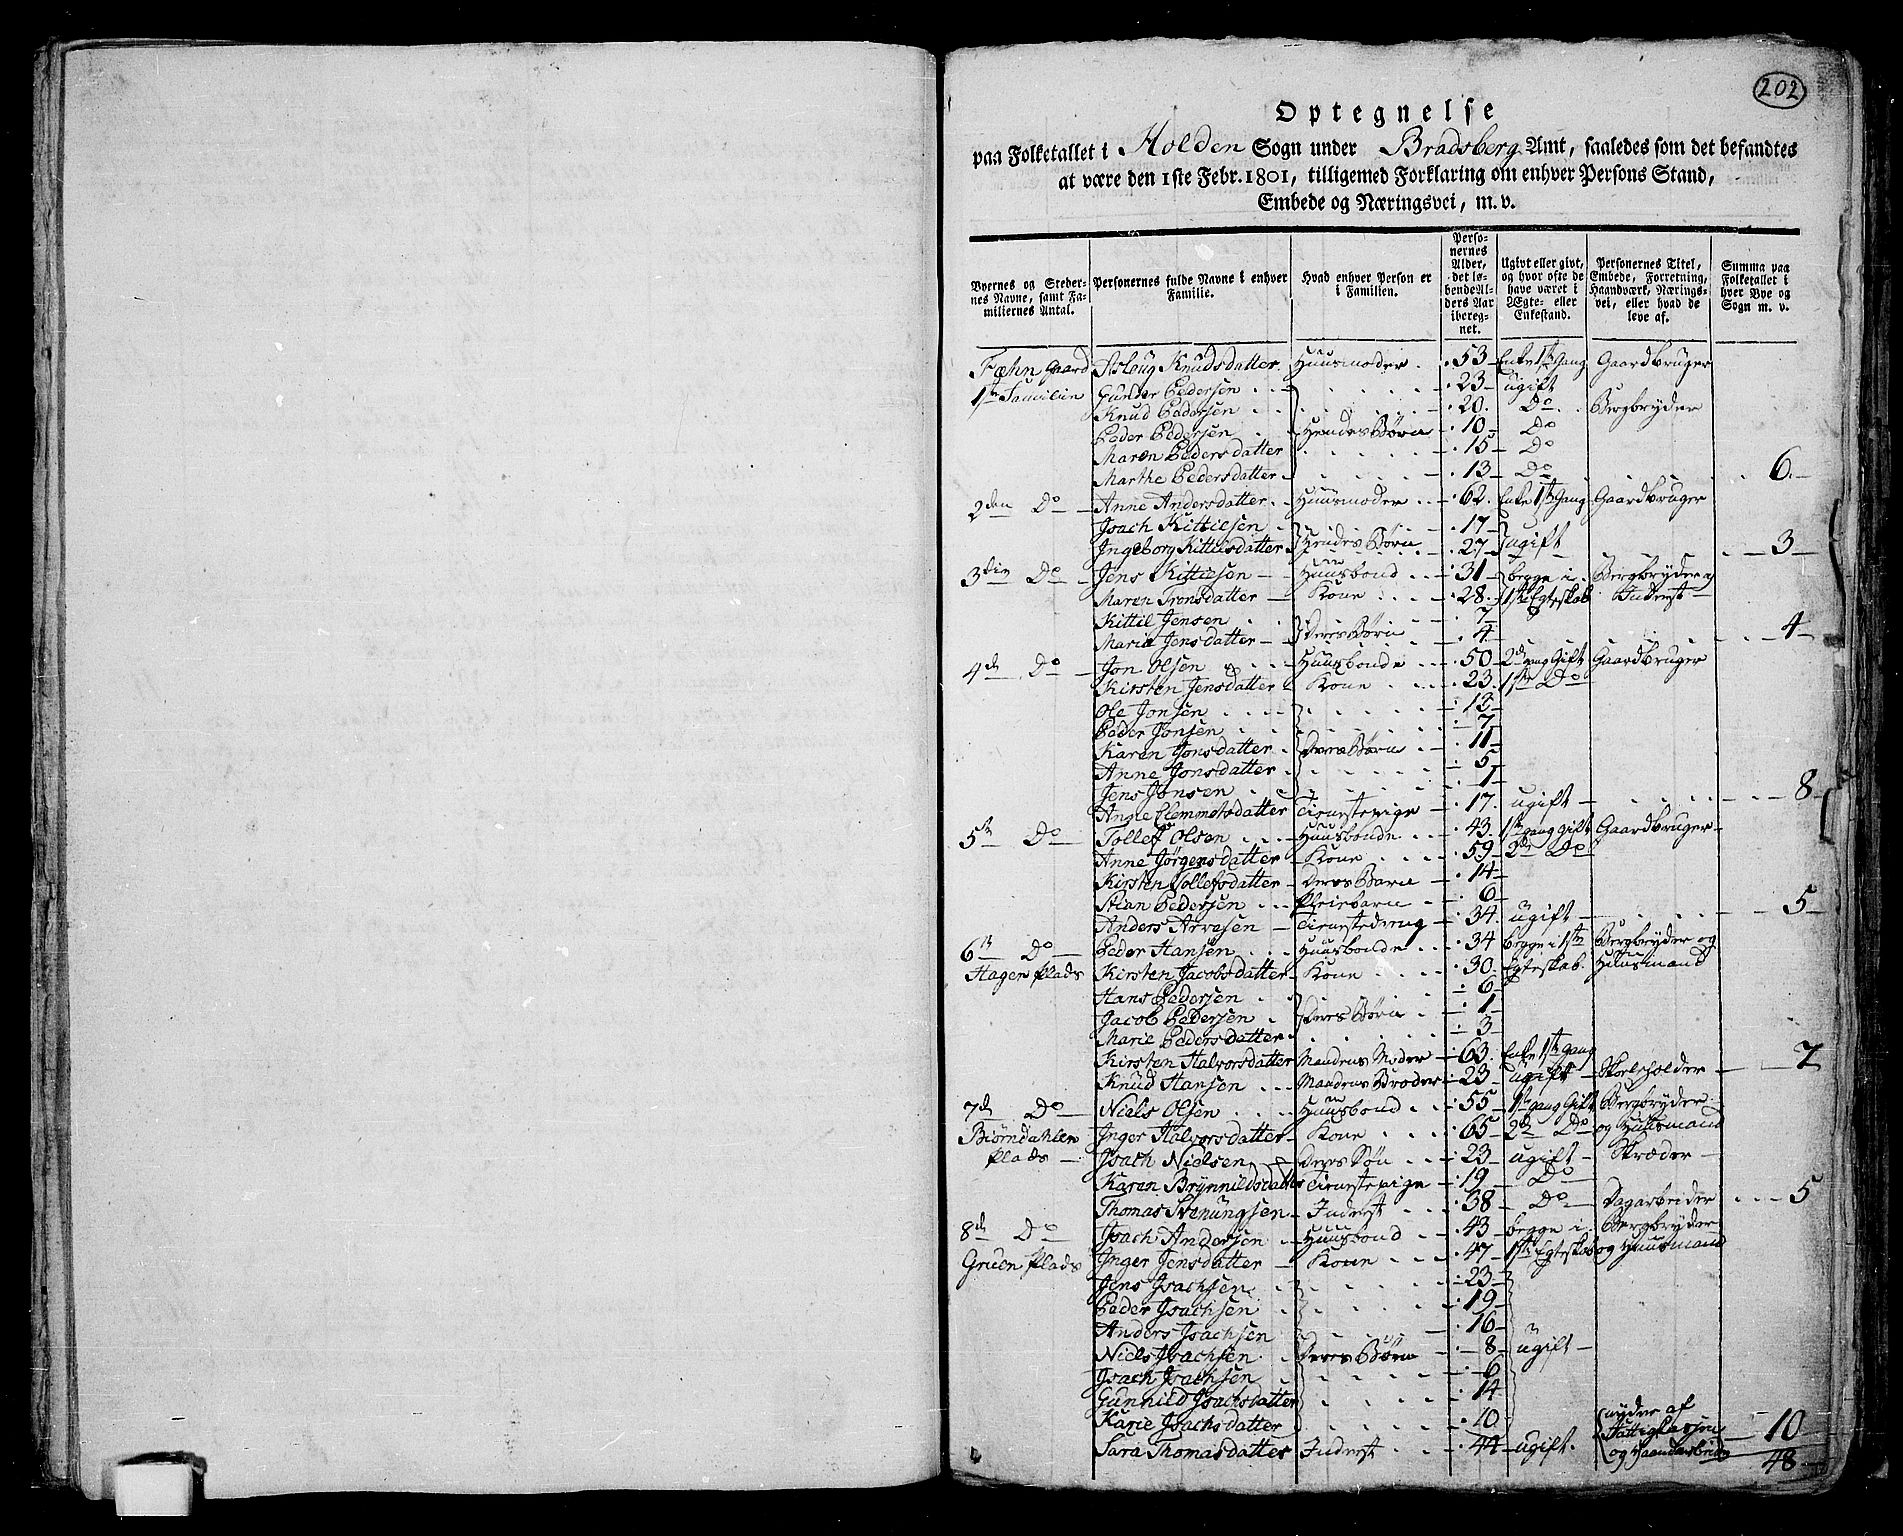 202
Optegnelse
paa Folketallet i Holden Sogn under Bradsberg Amt, saaledes som det befandtes
at være den 1ste Febr. 1801, tilligemed Forklaring om enhver Persons Stand,
Embede og Næringsvei, m. v.
Byernes og Stedernes Navne, samt Familiernes Antal. | Personernes fulde Navne i enhver Familie. | Hvad enhver Person er i Familien. | Personernes Alder, det løbende Alders Aar iberegnet. | Ugivt eller givt, og hvor ofte de have været i Ægte- eller Enkestand. | Personernes Titel, Embede, Forretning, Haandværk, Næringsvei, eller hvad de leve af. | Summa paa Folketallet i hver Bye og Sogn m. v.
Fæhn Gaard Asloug Knudsdatter Huusmoder 53 Enke 1ste Gang Gaardbruger
1ste Familien Gunder Pedersen 23 ugift
Knud Pedersen 20 Do Bergbryder
Peder Pedersen Hendes Børn 10 Do
Maren Pedersdatter 15 Do
Marthe Pedersdatter 13 Do 6
2den Do Anne Andersdatter Huusmoder 62 Enke 1ste Gang Gaardbruger
Isach Kittilsen 17
Ingeborg Kittilsdatter Hendes Børn 27 ugift 3
3die Do Jens Kittilsen Huusbond 31 begge i Bergbryder og
Maren Tronsdatter Kone 28 1ste Egteskab Inderst
Kittil Jensen 7
Marie Jensdatter Deres Børn 4 4
4de Do Jon Olsen Huusbonde 50 2de gang Gift Gaardbruger
Kirsten Jensdatter Kone 23 1ste Do
Ole Jonsen 13
Peder Jonsen 7
Karen Jonsdatter Deres Børn 11
Anne Jonsdatter 5
Jens Jonsen 1
Anne Clemmetsdatter Tieneste pige 17 ugift 8
5te Do Tollef Olsen Huusbonde 43 1ste gang Gift Gaardbruger
Anne Jørgensdatter Kone 59 2de Do
Kirsten Tollefsdatter Deres Barn 14
Stian Pedersen Pleiebarn 6
Anders Arvesen Tienestedreng 34 ugift 5
6te Do Peder Hansen Huusbonde 34 begge i 1ste Bergbryder og
Hagen Plads Kirsten Jacobsdatter Kone 30 Egteskab Huusmand
Hans Pedersen 6
Jacob Pedersen Deres Børn 1
Marie Pedersdatter 3
Kirsten Halvorsdatter Mandens Moder 63 Enke 1ste gang 7
Knud Hansen Mandens Broder 23 ugift Skoleholder
7de Do Niels Olsen Huusbond 55 1ste gang Gift Bergbryder
Biørndahlen Inger Halvorsdatter Kone 65 2de Do og Huusmand
Plads Isach Nielsen Deres Søn 23 ugift Skræder
Karen Brynnildsdatter Tieneste pige 19 Do
Thomas Svenungsen Inderst 38 Do Dagarbeider 5
8de Do Isach Andersen Huusbond 43 begge i Bergbryder
Gruen Plads Inger Jensdatter Kone 47 1ste Egteskab og Huusmand
Jens Isachsen 23
Peder Isachsen 19
Anders Isachsen 16
Niels Isachsen Deres Børn 8 ugift
Isach Isachsen 6
Gunnild Isachsdatter 14
Karie Isachsdatter 10 nyder af
Sara Thomasdatter Inderst 44 ugift Fattigkassen 10
og Haandarbeide 48